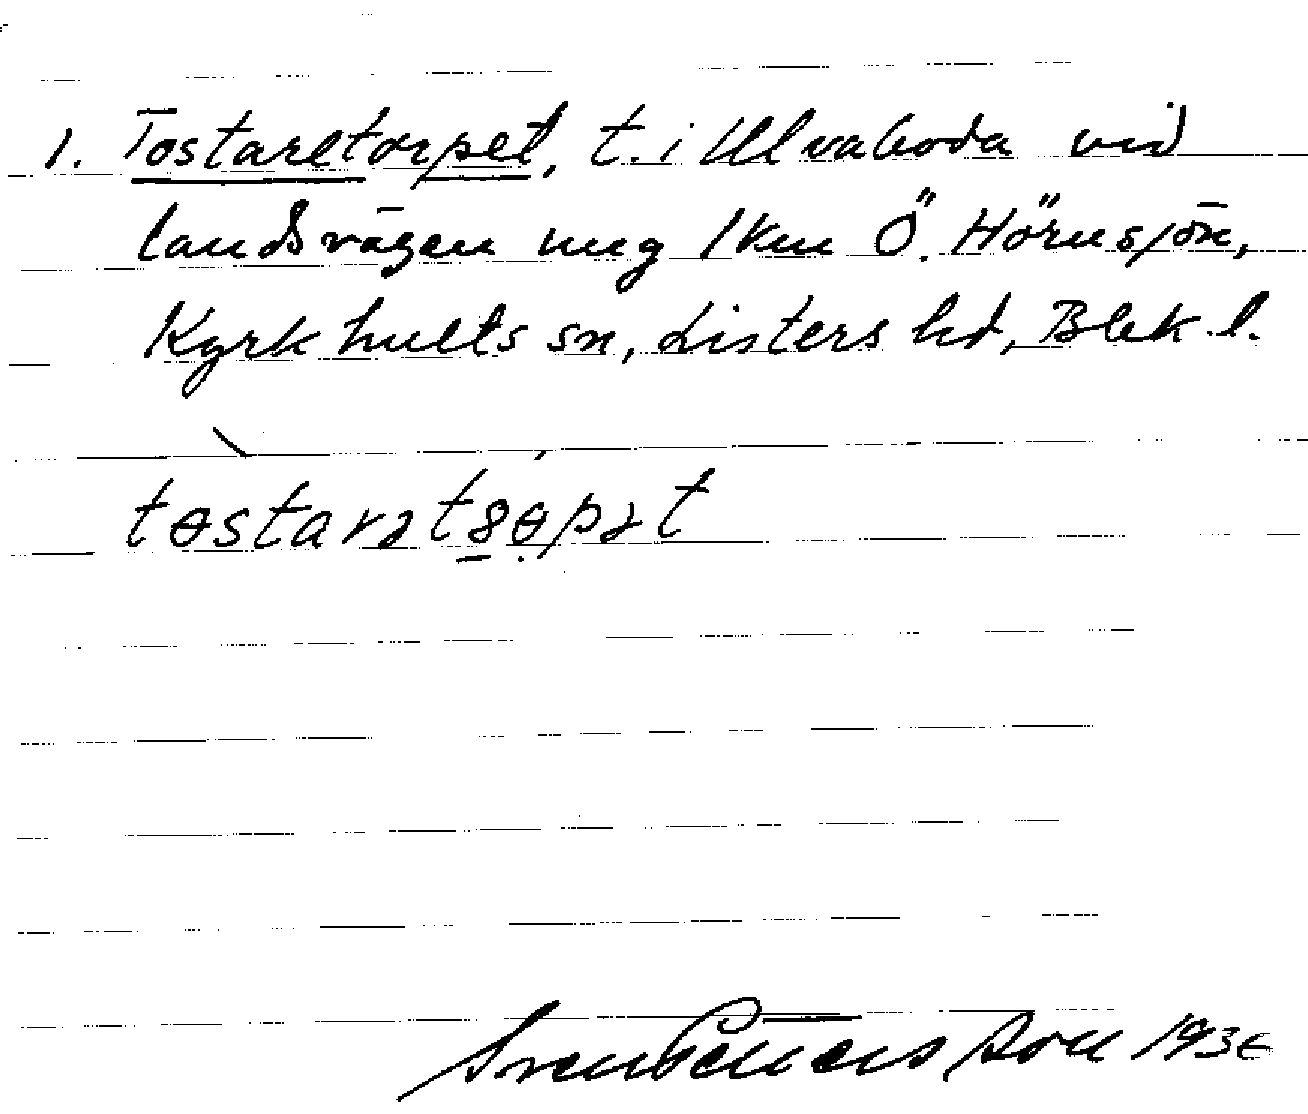 1. Tostaretorpet, t. i Ulvaboda vid
landsvägen ung 1 km Ö. Hörnsjön,
Kyrkhults sn, Listers hd, Blek. l.
Sven Benson 1936